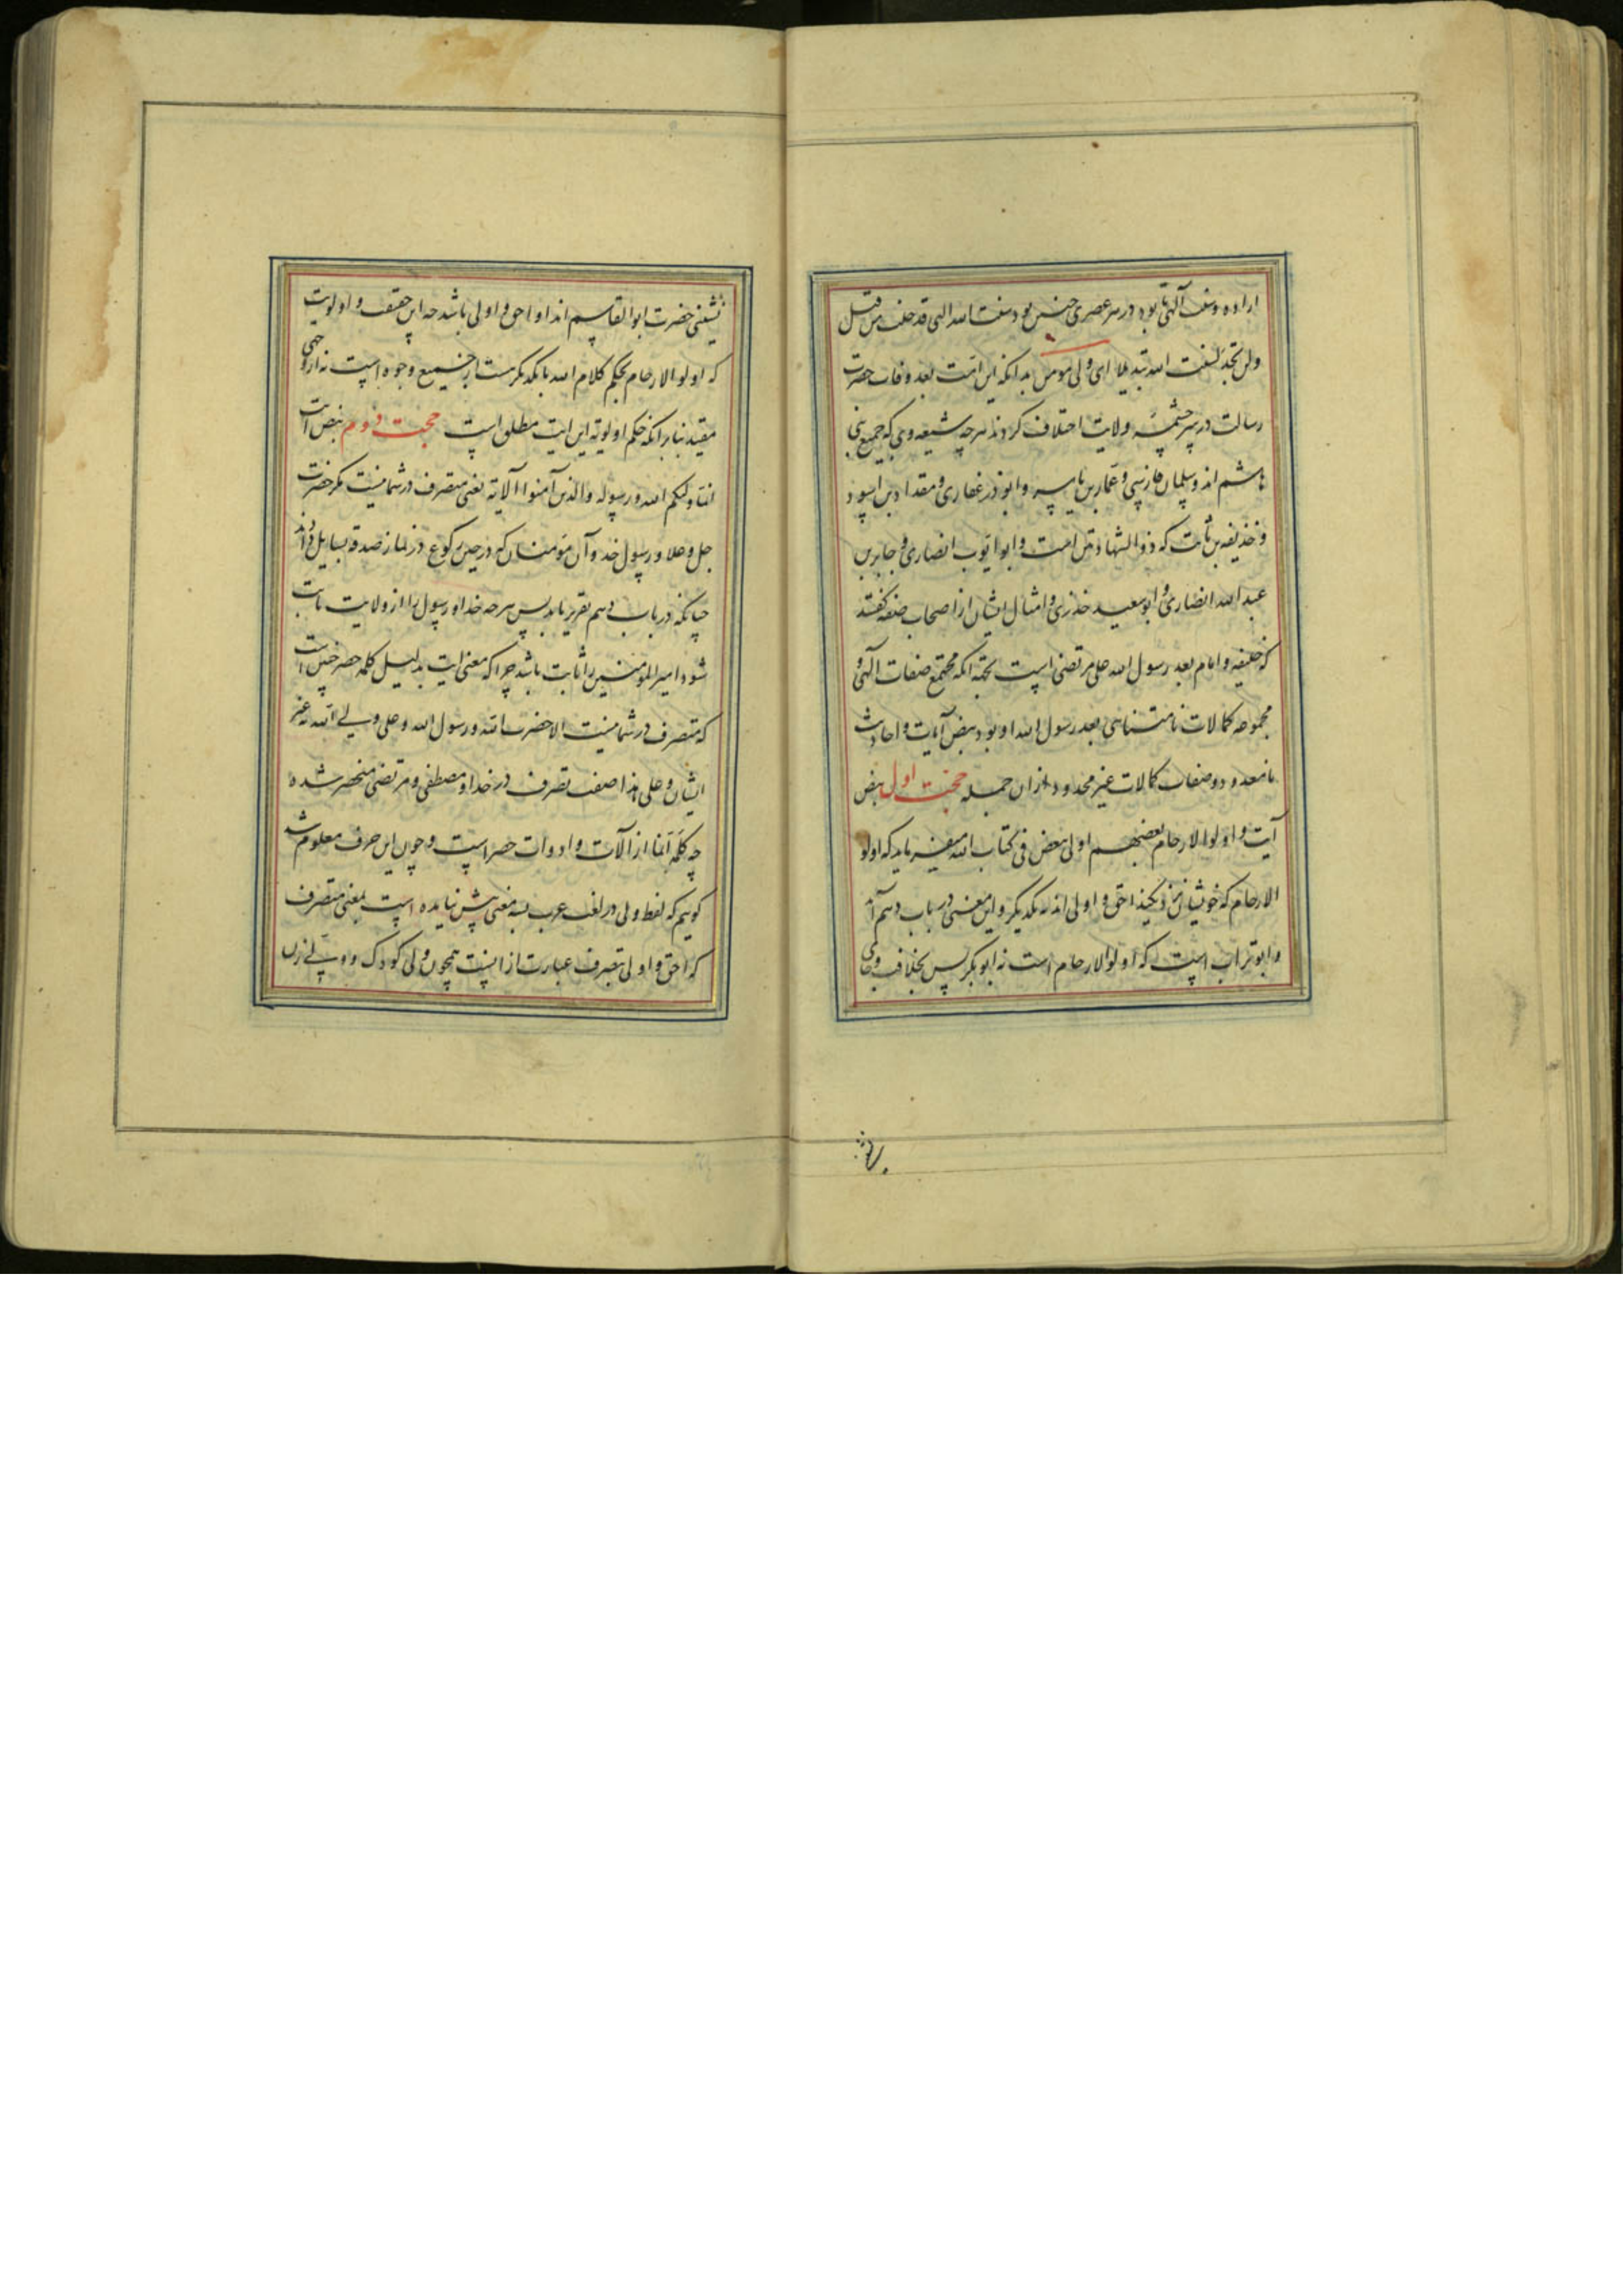 اراده و سنت آلهی بود در هر عصری چنین بود سنت الله التی قد خلت من قبل
ولن تجد لسنت الله تبدیلا ای ولی مومن بدانکه این امت بعد وفات حضرت
رسالت در سرچشمه ولایت اختلاف کردند هرچه شیعه وی که جمیع بنی
هاشم اند و سلمان فارسی و عمار بن یاسر و ابوذر غفاری و مقداد بن اسود
و خذیفه بن ثابت که ذو الشهادتین است و ابو ایوب انصاری و جابر بن
عبد الله انصاری و ابو سعید خدری و امثال ایشان از اصحاب صفه گفتند
که خلیفه و امام بعد رسول الله علی مرتضی است بحجة انکه مجتمع صفات آلهی و
مجموعه کمالات نامتناهی بعد رسول الله او بود بنص آیات و احادیث
نامعدود و صفات کمالات غیر محدود از ان جمله حجت اول بنص
آیت و اولوا الارحام بعضهم اولی ببعض فی کتاب الله میفرماید که اولو
الارحام که خویشان نزدیکند احق و اولی اند به یکدیگر و این معنی در باب دهم آمد
و ابو تراب است که اولوالارحام است نه ابوبکر پس بخلافت و جای
نشینی حضرت ابو القاسم اند او احق و اولی باشد چه این حقیقت و اولویت
که اولو الارحام بحکم کلام الله با یکدیگر هست از جمیع وجوه است نه از وجهی
مقید بنابر انکه حکم اولویة این ایت مطلق است حجت دوم بنص آیت
انما ولیکم الله و رسوله والذین آمنوا الآیة یعنی متصرف در شما نیست مگر حضرت
جل و علا و رسول خدا و آن مومنان که در حین رکوع در نماز صدقه بسایل دادند
چنانکه در باب دهم تقریر یابد پس هرچه خدا و رسول را از ولایت ثابت
شود امیر المومنین را ثابت باشد چرا که معنی ایت بدلیل کلمه حصر چنین است
که متصرف در شما نیست الا حضرت الله و رسول الله و علی ولی الله نه غیر
ایشان و علی هذا صفت تصرف در خدا و مصطفی و مرتضی منحصر شده
چه کلمه انما از آلات و ادوات حصر است و چون این حرف معلوم شد
کوییم که لفظ ولی در لغت عرب بسه معنی بیش نیامده است بمعنی متصرف
که احق و اولی بتصرف عبارت از اینست همچون ولی کودک و ولی زن